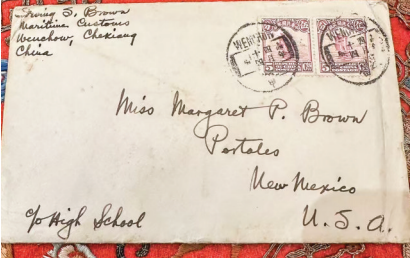 Irving S. Brown
Maritime Customs
Wenchow, Chekiang
China
WENCHOW
WENCHOW
5
5
Miss Margaret P. Brown
Portales
New Mexico
U. S. A.
c/o High School